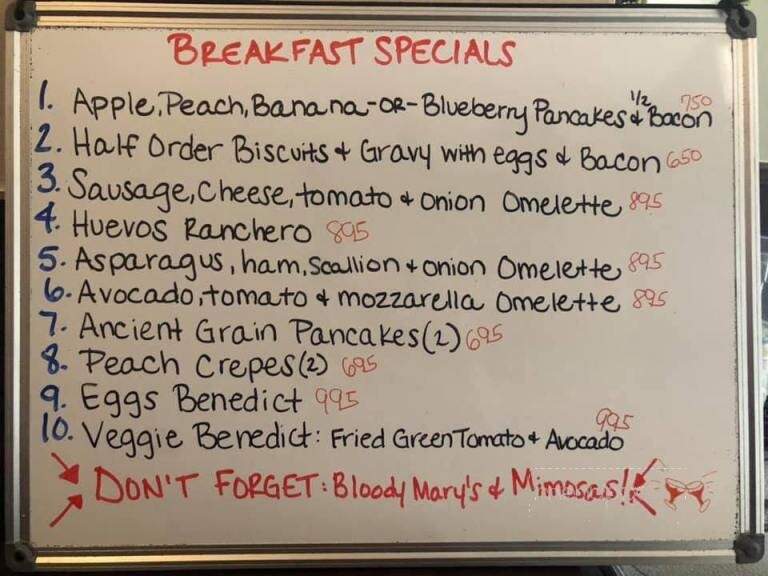 BREAKFAST SPECIALS
1. Apple, Peach, Banana-OR-Blueberry Pancakes & 1/2 Bacon 750
2. Half Order Biscuits & Gravy with eggs & Bacon 650
3. Sausage, Cheese, tomato & onion Omelette 895
4. Huevos Ranchero 895
5. Asparagus, ham, Scallion & onion Omelette 895
6. Avocado, tomato & mozzarella Omelette 895
7. Ancient Grain Pancakes (2) 695
8. Peach Crepes (2) 695
9. Eggs Benedict 995
10. Veggie Benedict: Fried Green Tomato & Avocado 995
DON'T FORGET: Bloody Mary's & Mimosas!!